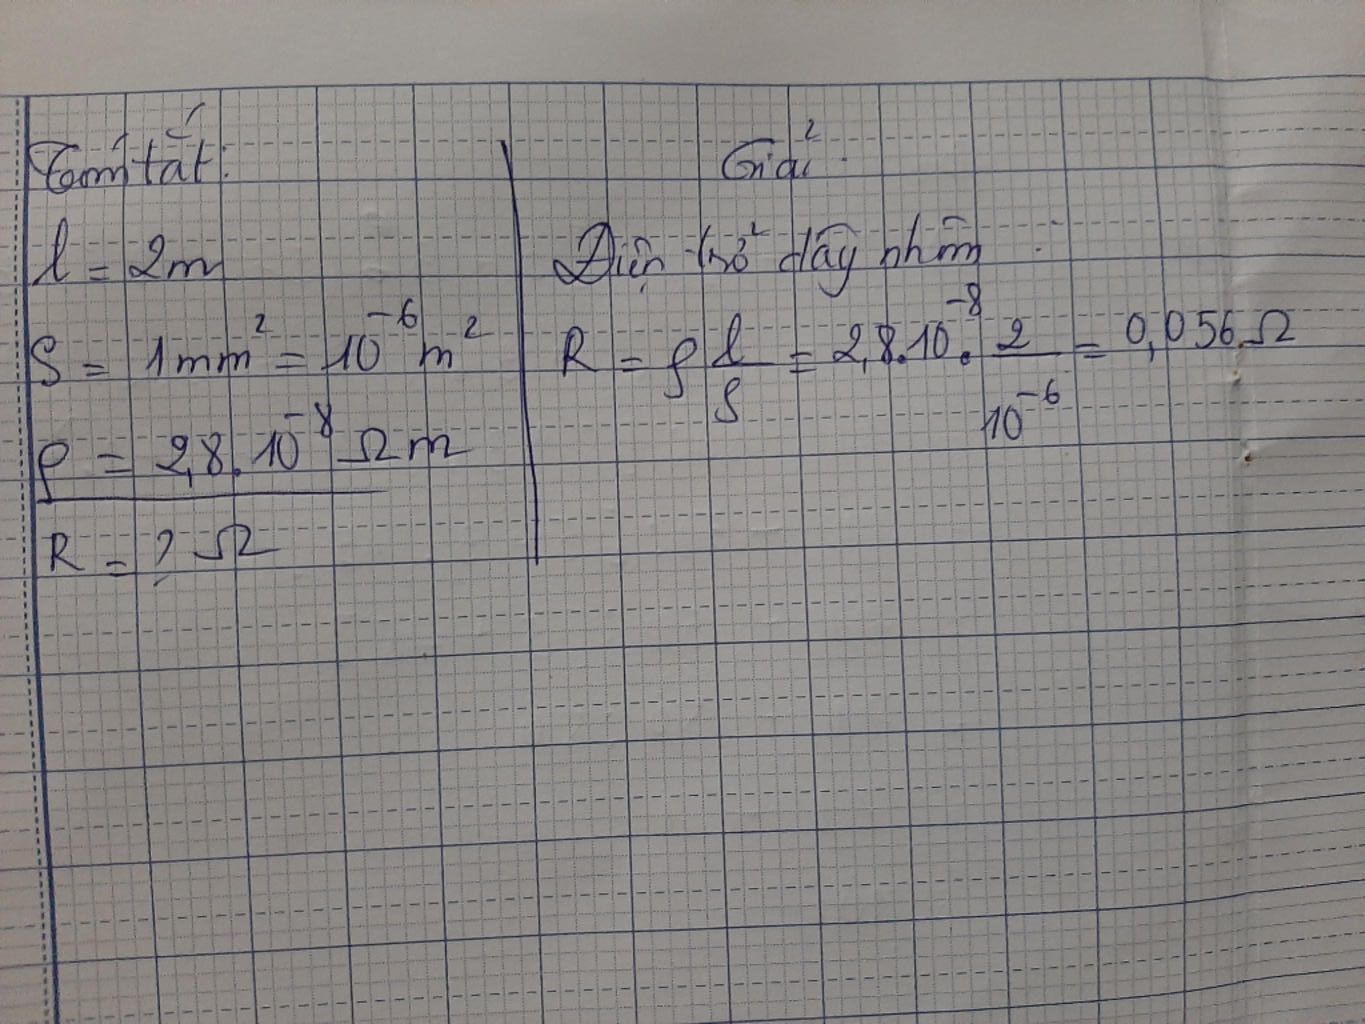 Tóm tắt:
l = 2m
S = 1mm² = 10⁻⁶ m²
ρ = 2,8.10⁻⁸ Ωm
R = ? Ω
Giải:
Điện trở dây nhôm :
R = ρ l/S = 2,8.10⁻⁸. 2/10⁻⁶ = 0,056Ω